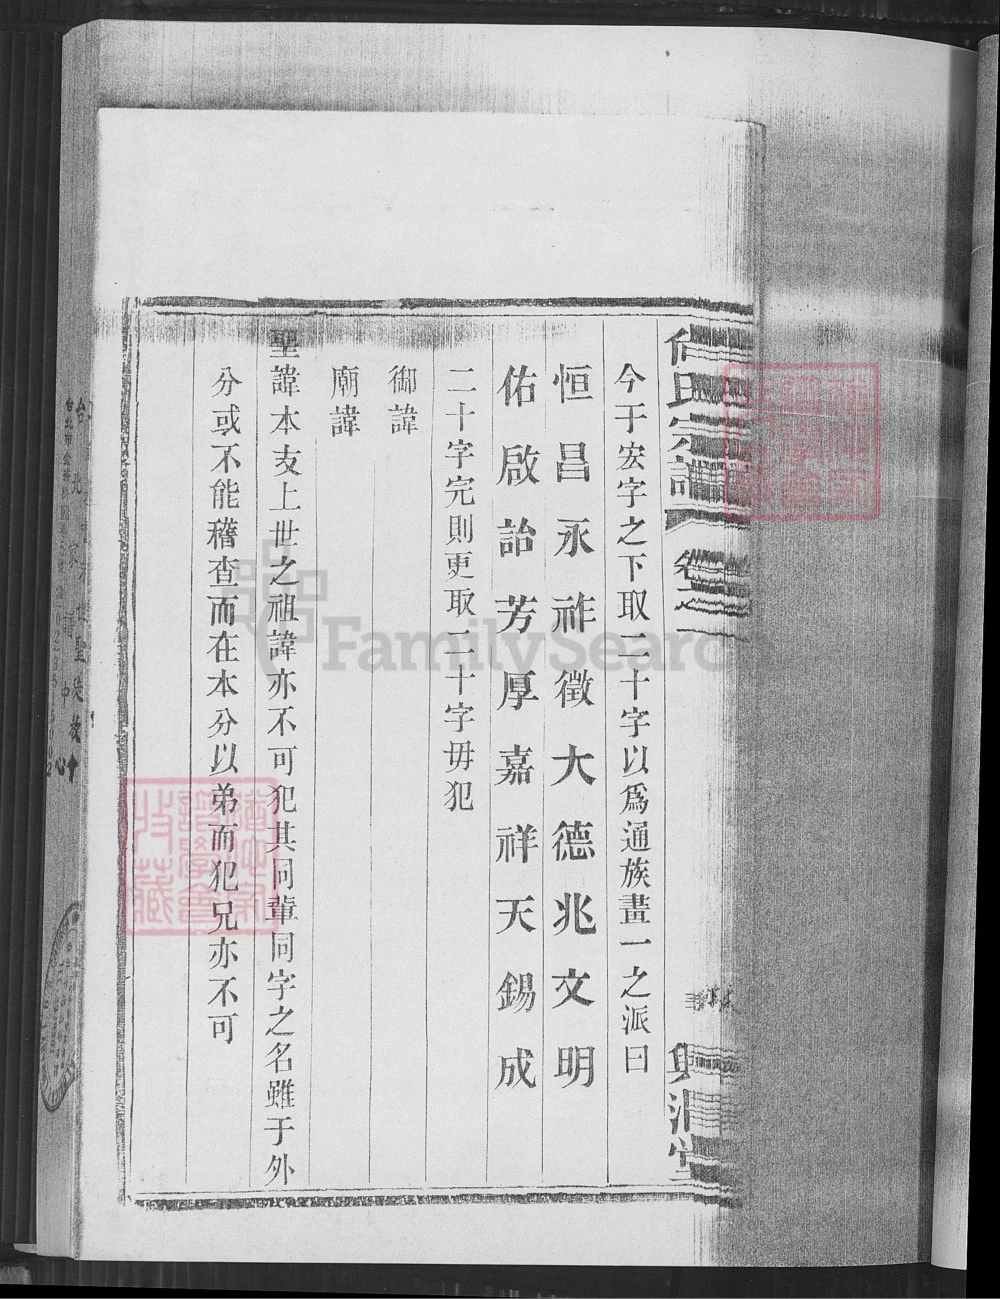 氏宗譜 卷之
今于宏字之下取二十字以爲通族畫一之派曰
恒昌永祚徵大德兆文明
佑啟詒芳厚嘉祥天錫成
二十字完則更取二十字毋犯
御諱
廟諱
聖諱本支上世之祖諱亦不可犯其同輩同字之名雖于外
分或不能稽查而在本分以弟而犯兄亦不可
FamilySearch